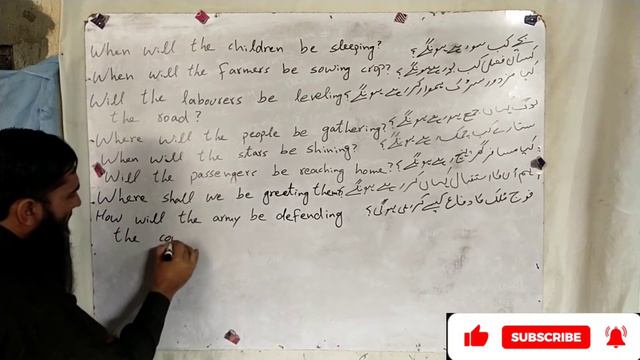 When will the children be sleeping? بچے کب سو رہے ہونگے؟
When will the farmers be sowing crop? کسان فصل کب بو رہے ہونگے؟
Will the labourers be leveling کیا مزدور سڑک ہموار کر رہے ہونگے؟
the road?
Where will the people be gathering? لوگ کہاں جمع ہو رہے ہونگے؟
When will the stars be shining? ستارے کب چمک رہے ہونگے؟
Will the passengers be reaching home? کیا مسافر گھر پہنچ رہے ہونگے؟
Where shall we be greeting them? ہم اُن کا استقبال کہاں کر رہے ہونگے؟
How will the army be defending فوج ملک کا دفاع کیسے کر رہی ہوگی؟
the co
SUBSCRIBE